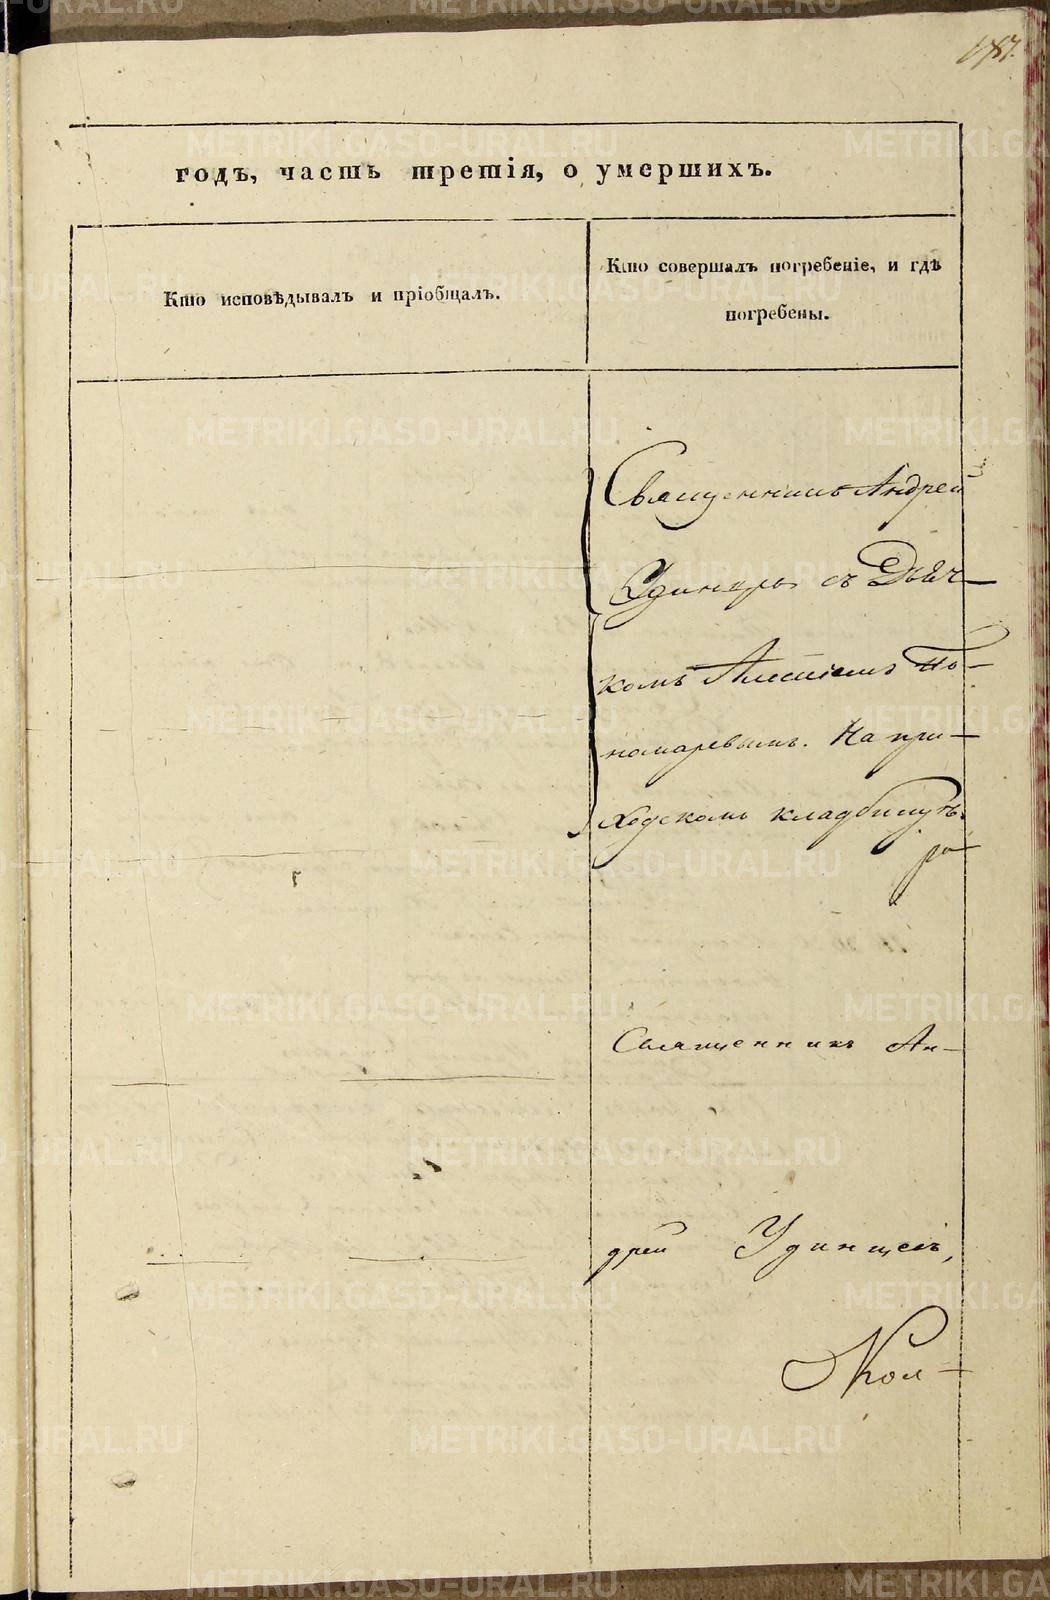 187.
годъ, часть третія, о умершихъ.
Кто исповѣдывалъ и пріобщалъ.
Кто совершалъ погребеніе, и гдѣ
погребены.
Священникъ Андрей
Удинцовъ съ Дьяч-
комъ Алексіемъ По-
номаревымъ. На при-
ходскомъ кладбищѣ.
Священникъ Ан-
дрей Удинцевъ,
METRIKI.GASO-URAL.RU